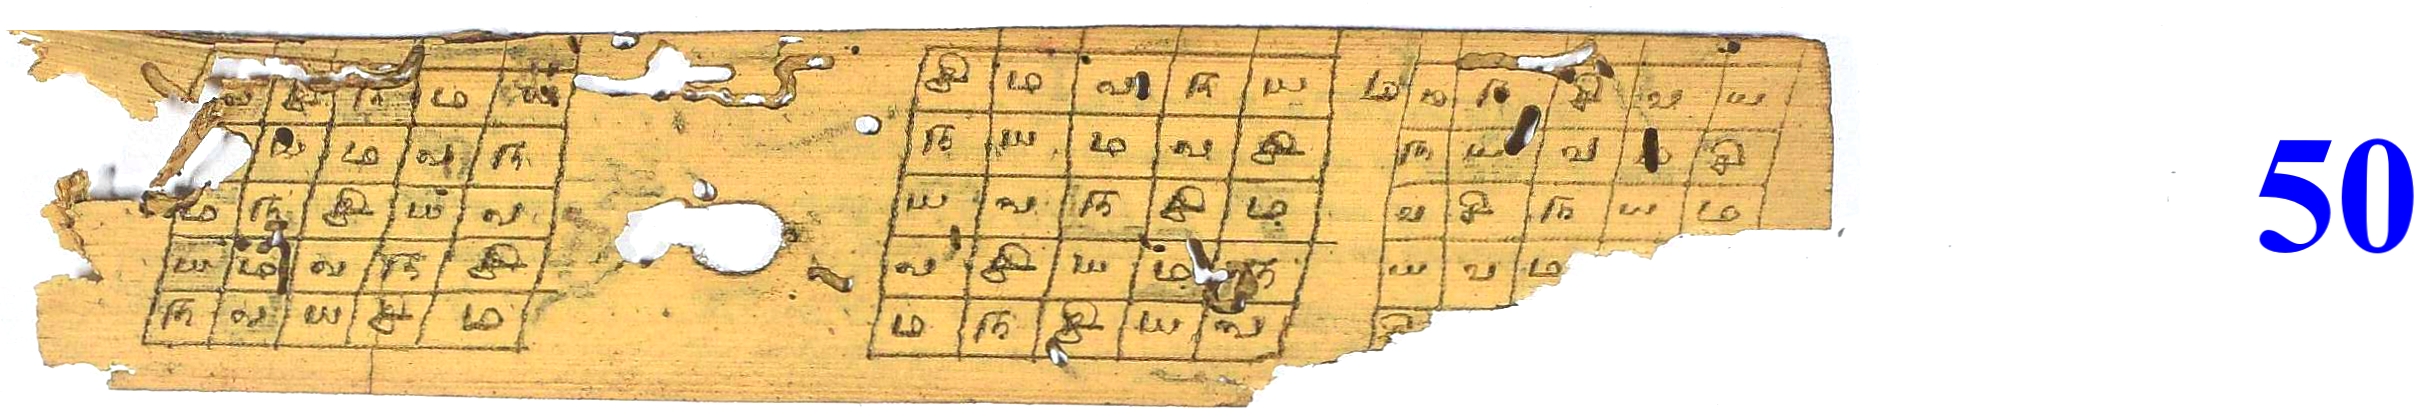 வ சி ந ம ய சி ம வ ந ய ம ம ந சி வ ய
ய ம வ ந ந ய ம வ சி ந ய வ ம சி
ம ந சி ய வ ய வ ந சி ம வ சி ந ய ம
ய ம வ ந சி வ சி ய ம ந ய வ ம
ந வ ய சி ம ம ந சி ய வ சி
50